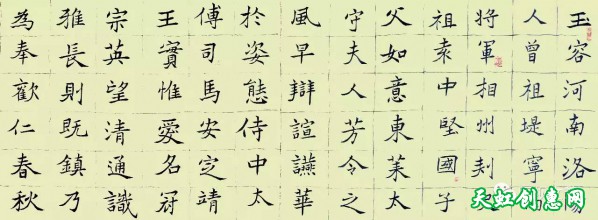 王容河南洛
人曾祖堤寧
將軍相州刾
祖袁中堅國子
父如意東莱太
守夫人芳令之
風早辯諠讌華
於姿態侍中太
傅司馬安定靖
王實惟愛名冠
宗英望清通識
雅長則既鎮乃
為奉歡仁春秋
天虹创意网